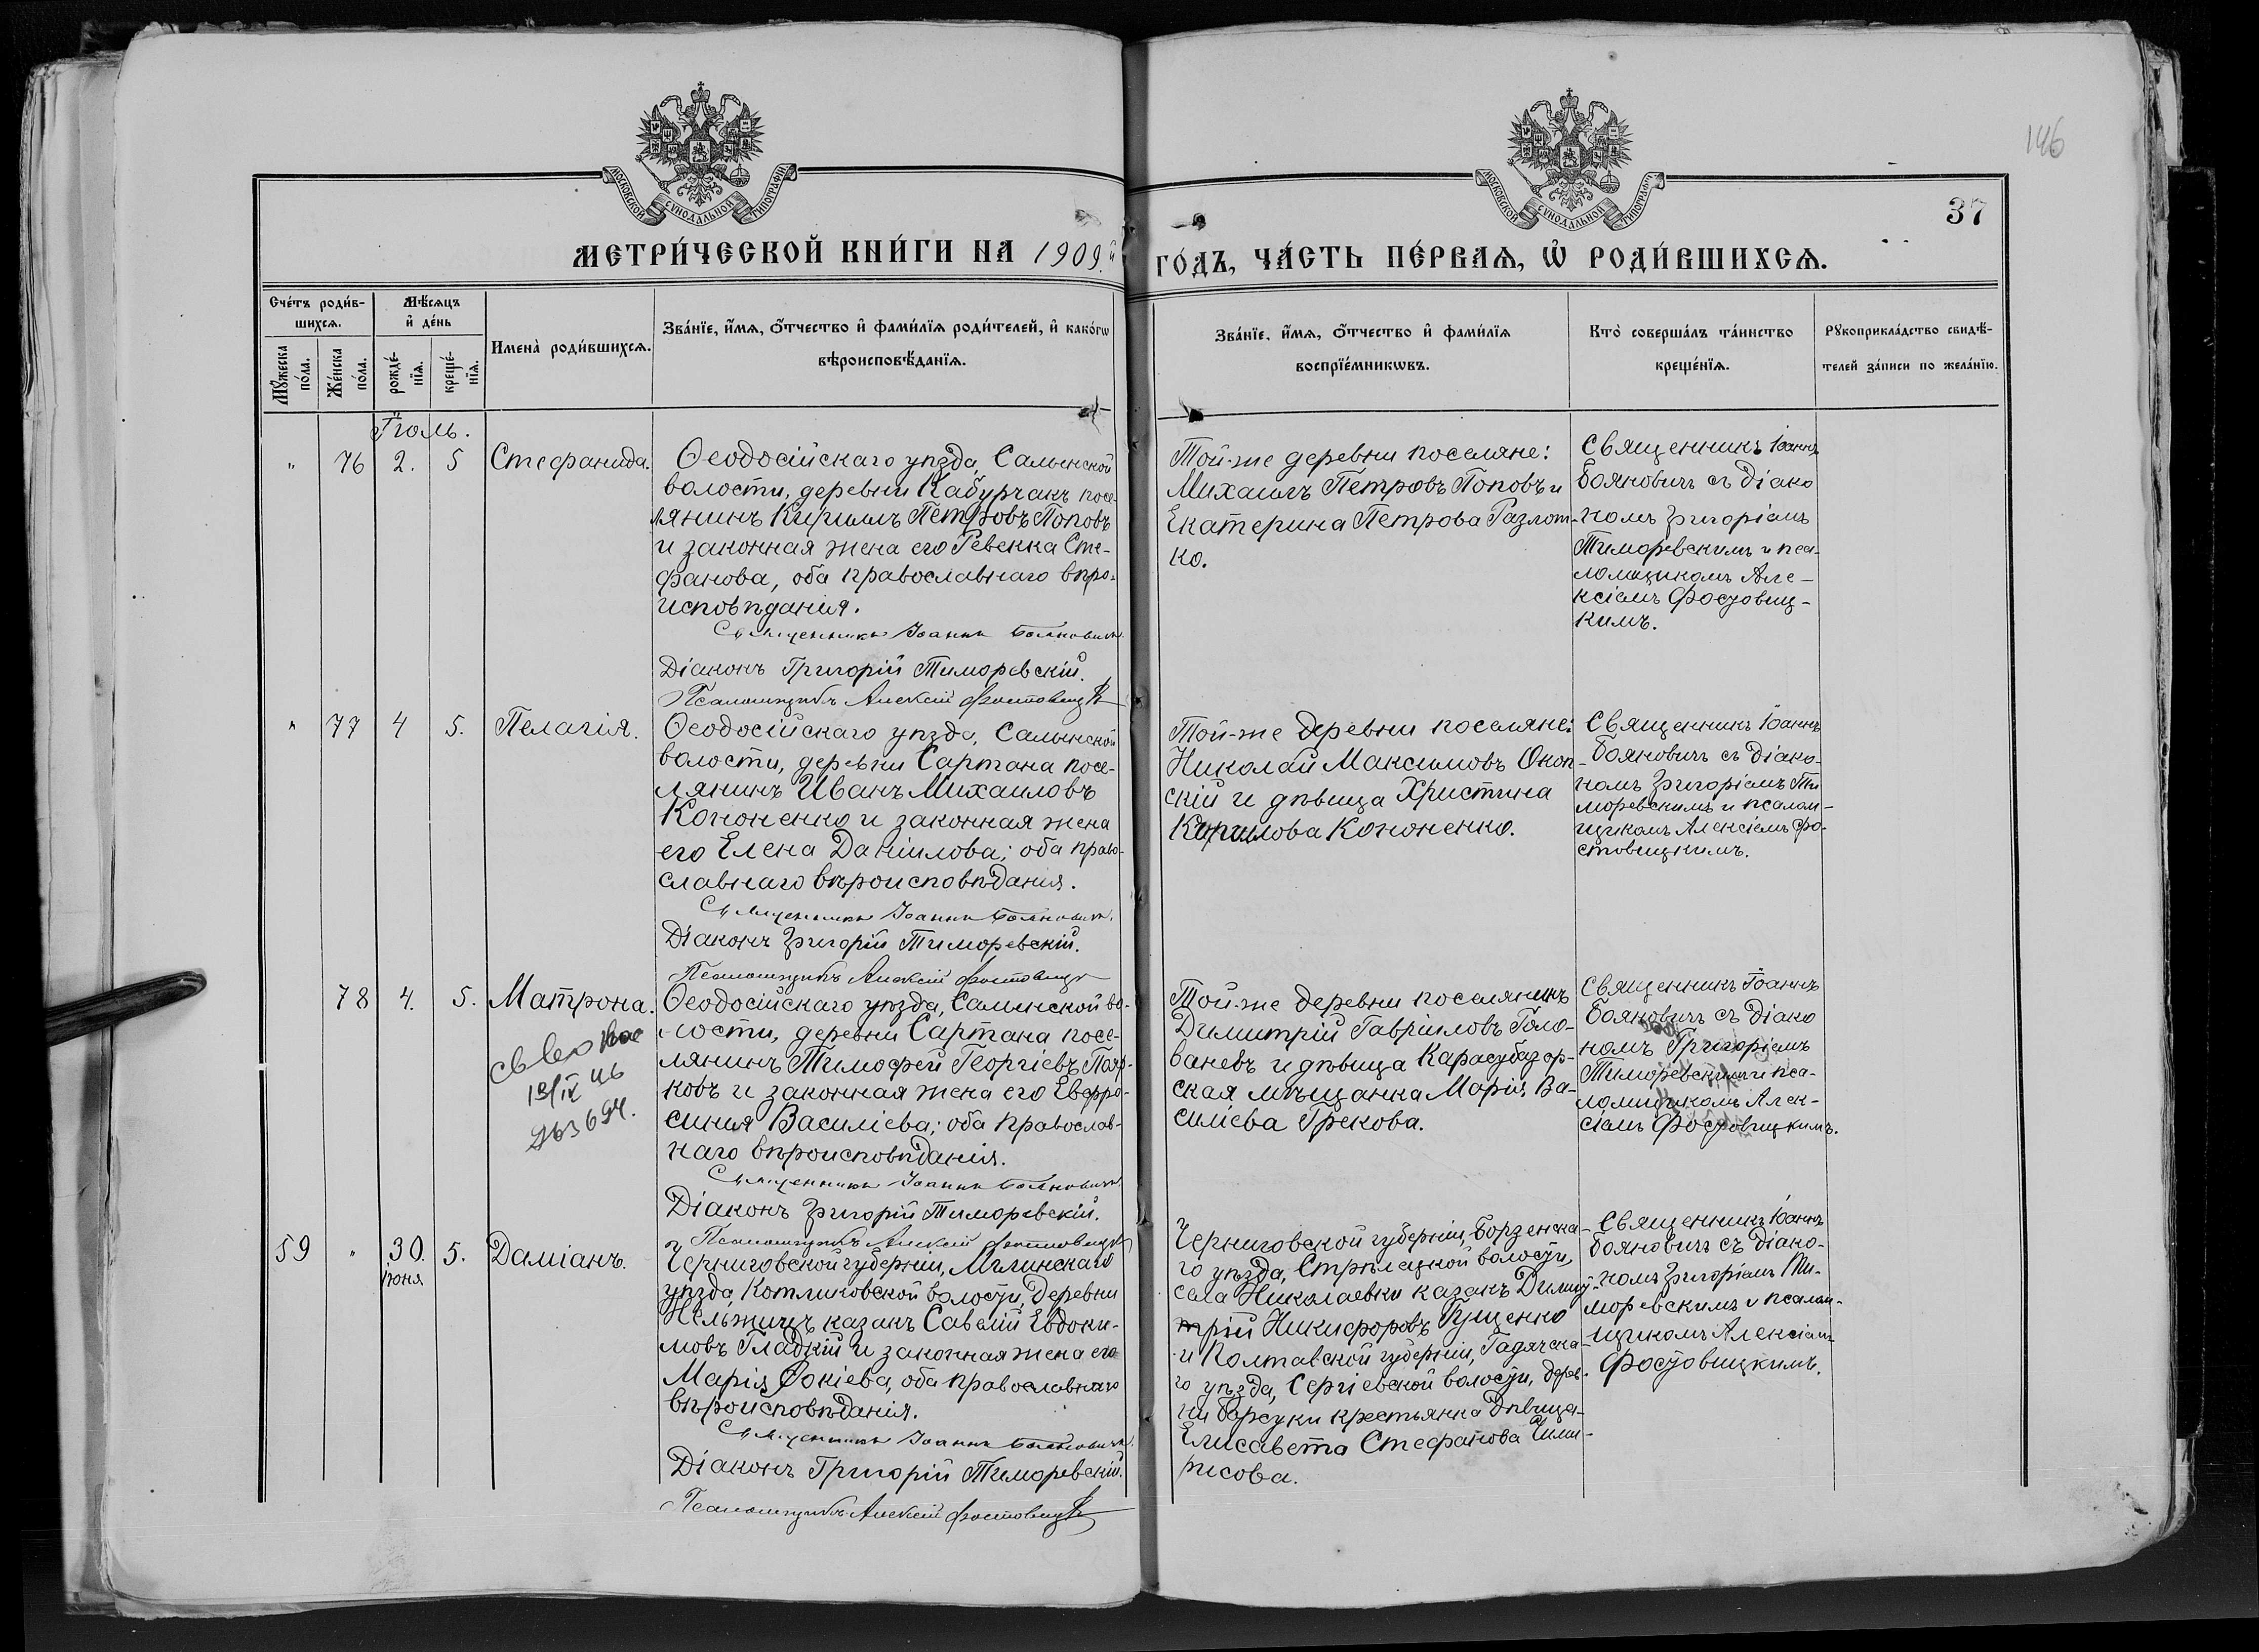 146
37
МОСКОВСКОЙ СѴНОДАЛЬНОЙ ТИПОГРАФІИ
МОСКОВСКОЙ СѴНОДАЛЬНОЙ ТИПОГРАФІИ
МЕТРИ́ЧЕСКОЙ КНИ́ГИ НА 1909й
ГО́ДЪ, ЧА́СТЬ ПЕ́РВАЯ, Ѡ РОДИ́ВШИХСЯ.
Сче́тъ роди́в-
шихся.
Му́жеска по́ла.
Же́нска по́ла.
Мѣ́сяцъ
и де́нь
рожде́-
нїя.
креще́-
нїя.
Имена̀ роди́вшихся.
Зва́нїе, и́мя, о́тчество и фами́лїя роди́телей, и како́гѡ
вѣроисповѣ́данїя.
Зва́нїе, и́мя, о́тчество и фами́лїя
воспрїе́мникѡвъ.
Кто̀ соверша́лъ та́инство
креще́нїя.
Рукоприкла́дство свидѣ́-
телей за́писи по жела́нїю.
Іюль.
" 76 2. 5 Стефанида.
Ѳеодосійскаго уѣзда, Салынской
волости, деревни Кабурчакъ посе-
лянинъ Кириллъ Петровъ Поповъ
и законная жена его Ревекка Сте-
фанова, оба православнаго вѣро-
исповѣданія.
Священникъ Іоаннъ Бояновичъ.
Діаконъ Григорій Тиморевскій.
Псаломщикъ Алексій Фостовицк
Той-же деревни поселяне:
Михаилъ Петровъ Поповъ и
Екатерина Петрова Разлот-
ко.
Священникъ Іоаннъ
Бояновичъ съ діако
номъ Григоріемъ
Тиморевскимъ и пса-
ломщикомъ Але-
ксіемъ Фостовиц-
кимъ.
" 77 4 5. Пелагія.
Ѳеодосійскаго уѣзда, Салынской
волости, деревни Сартана посе-
лянинъ Иванъ Михаиловъ
Кононенко и законная жена
его Елена Даніилова; оба право-
славнаго вѣроисповѣданія.
Священникъ Іоаннъ Бояновичъ.
Діаконъ Григорій Тиморевскій.
Псаломщикъ Алексій Фостовицк
Той-же деревни поселяне:
Николай Максимовъ Окоп-
скій и дѣвица Христина
Кириллова Кононенко.
Священникъ Іоаннъ
Бояновичъ съ діако-
номъ Григоріемъ Ти
моревскимъ и псалом-
щикомъ Алексіемъ Фо-
стовицкимъ.
78 4. 5. Матрона.
13/IV 46
Ѳеодосійскаго уѣзда, Салынской во-
лости, деревни Сартана посе-
лянинъ Тимофей Георгіевъ
ковъ и законная жена его Евфро-
синія Василіева; оба православ-
наго вѣроисповѣданія.
Священникъ Іоаннъ Бояновичъ.
Діаконъ Григорій Тиморевскій.
Псаломщикъ Алексій Фостовицк
Той-же деревни поселянинъ
Димитрій Гавріиловъ Голо-
ваневъ и дѣвица Карасубазар-
ская мѣщанка Марія Ва-
силіева Грекова.
Священникъ Іоаннъ
Бояновичъ съ діако
номъ Григоріемъ
Тиморевскимъ и пса-
ломщикомъ Алек-
сіемъ Фостовицкимъ.
59 " 30. 5. Даміанъ.
іюня
Черниговской губерніи, Мглинскаго
уѣзда, Котляковской волости, деревни
Нельжичъ казакъ Савелій Евдоки-
мовъ Гладкій и законная жена его
Марія Фокіева, оба православнаго
вѣроисповѣданія.
Священникъ Іоаннъ Бояновичъ.
Діаконъ Григорій Тиморевскій.
Псаломщикъ Алексій Фостовицк
Черниговской губерніи, Борзенска-
го уѣзда, Стрѣлецкой волости,
села Николаевки казакъ Дими-
трій Никифоровъ Рущенко
и Полтавской губерніи, Гадячска-
го уѣзда, Сергіевской волости, дерев-
ни Барсуки крестьянка дѣвица
Елисавета Стефанова
Священникъ Іоаннъ
Бояновичъ съ діако-
номъ Григоріемъ Ти-
моревскимъ и псалом-
щикомъ Алексіемъ
Фостовицкимъ.